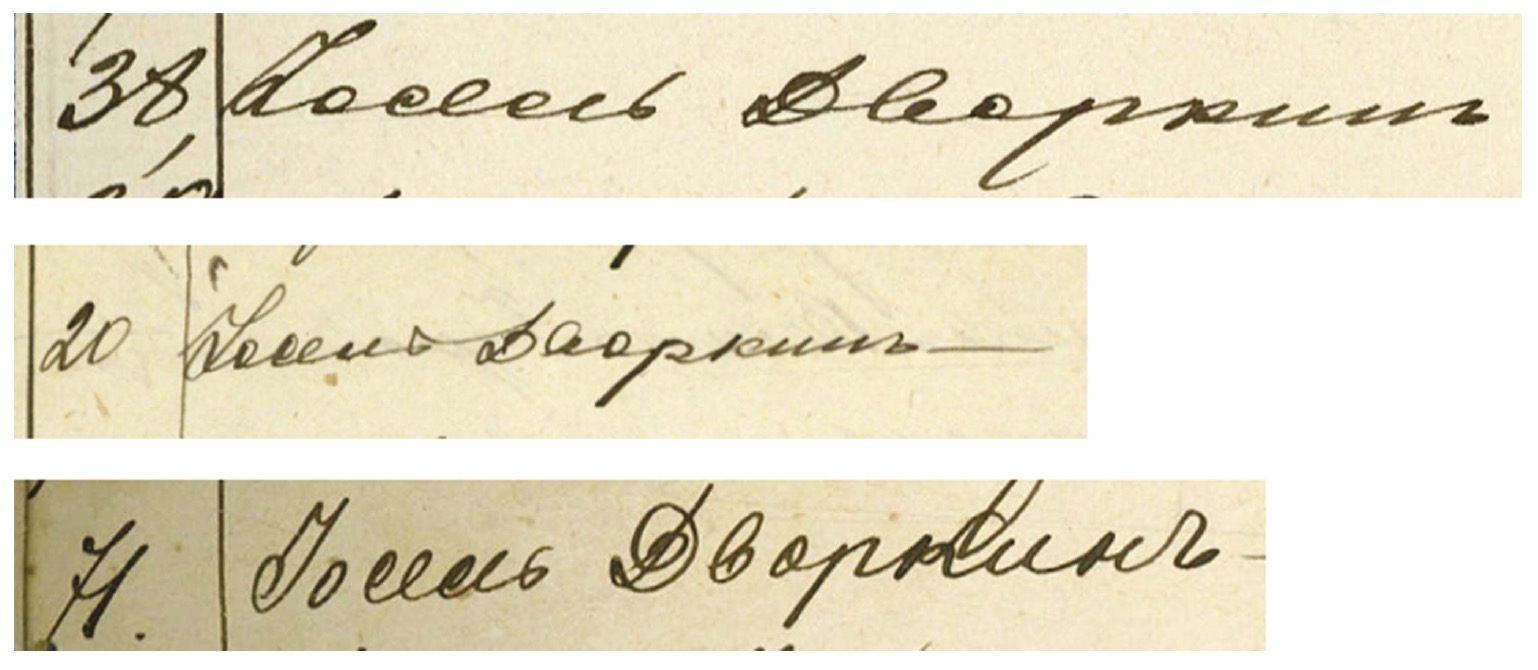 38 Іосель Дворкинъ
20 Іосель Дворкинъ
71. Іосель Дворкинъ